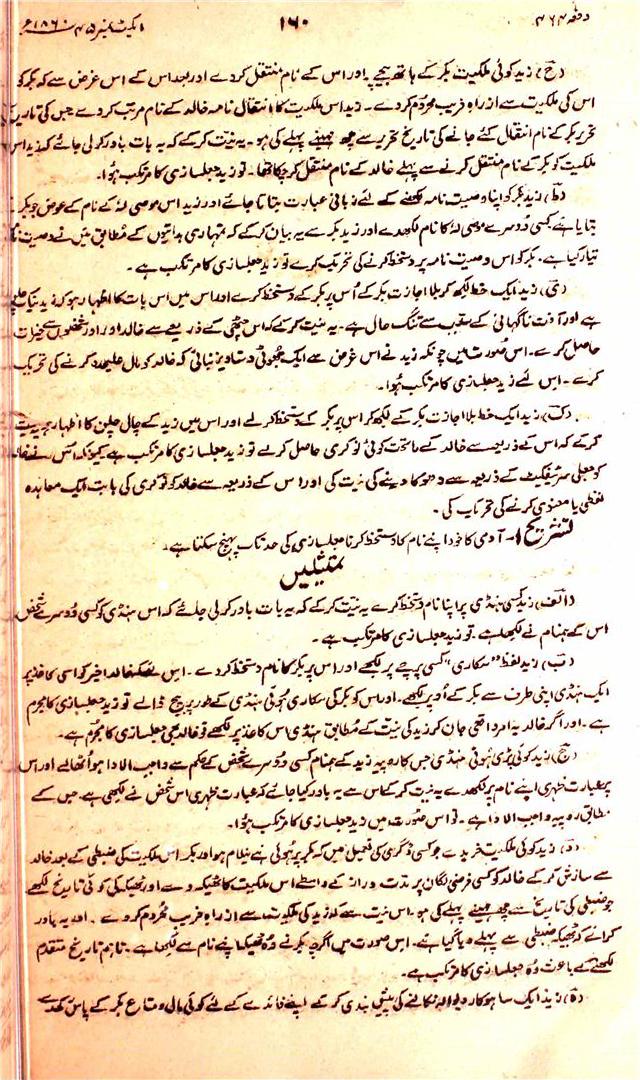 دفعہ ۴۶۴ ۱۶۰ ایکٹ نمبر ۴۵ ۱۸۶۰ء
(ح) زید کوئی ملکیت بکر کے ہاتھ بیچے اور اس کے نام منتقل کردے اور بعد اس کے اس غرض سے کہ بکر کو
اس کی ملکیت سے از راہِ فریب محروم کردے۔ زید اس ملکیت کا انتقال نامہ خالد کے نام مرتب کردے جس کی تاریخ
تحریر بکر کے نام انتقال کئے جانے کی تاریخ تحریر سے چھ مہینے پہلے کی ہو۔ یہ نیت کرکے کہ یہ بات باور کرلی جائے کہ زید اس
ملکیت کو بکر کے نام منتقل کرنے سے پہلے خالد کے نام منتقل کرچکا تھا۔ تو زید جعلسازی کا مرتکب ہوُا۔
(ط) زید بکر کو اپنا وصیت نامہ لکھنے کے لئے زبانی عبارت بتاتا جائے اور زید اس موصی لہٗ کے نام کے عوض جو بکر نے
بتایا ہے کسی دُوسرے موصی لہٗ کا نام لکھدے اور زید بکر سے یہ بیان کرکے کہ تمہاری ہدایتوں کے مُطابق میں نے وصیت نامہ
تیار کیا ہے۔ بکر کو اس وصیت نامہ پر دستخط کرنے کی تحریک کرے تو زید جعلسازی کا مرتکب ہے۔
(ی) زید ایک خط لکھ کر بلا اجازت بکر کے اُس پر بکر کے دستخط کرے اور اس میں اس بات کا اظہار ہو کہ زید نیک چلن
ہے اور آفت ناگہانی کے سبب سے تنگ حال ہے۔ یہ نیت کرکے کہ اس چٹھی کے ذریعے سے خالد اور اور شخصوں سے خیرات
حاصل کرے۔ اس صُورت میں چونکہ زید نے اس غرض سے ایک جھُوٹی دستاویز بنائی کہ خالد کو مال علیحدہ کرنے کی تحریک
کرے۔ اس لئے زید جعلسازی کا مرتکب ہوُا۔
(ک) زید ایک خط بلا اجازت بکر کے لکھ کر اس پر بکر کے دستخط کرلے اور اس میں زید کے چال چلن کا اظہار ہو یہ نیت
کرکے کہ اس کے ذریعہ سے خالد کے ماتحت کوئی نوکری حاصل کرے تو زید جعلسازی کا مرتکب ہے کیونکہ اُس نے خالد
کو جعلی سرٹیفکٹ کے ذریعہ سے دھوکا دینے کی نیت کی اور اس کے ذریعہ سے خالد کو نوکری کی بابت ایک معاہدہ
لفظی یا معنوی کرنے کی تحریک کی۔
تشریح ۱۔ آدمی کا خود اپنے نام کا دستخط کرنا جعلسازی کی حد تک پہنچ سکتا ہے۔
تمثیلیں
(الف) زید کسی ہنڈی پر اپنا نام دستخط کرے یہ نیت کرکے کہ یہ بات باور کرلی جائے کہ اس ہنڈی کو کسی دُوسرے شخص
اس کے ہمنام نے لکھا ہے۔ تو زید جعلسازی کا مرتکب ہے۔
(ب) زید لفظ ”سکاری“ کسی پرچے پر لکھے اور اس پر بکر کا نام دستخط کردے۔ اس لئے کہ خالد اخیر کو اسی کاغذ پر
ایک ہنڈی اپنی طرف سے بکر کے اُوپر لکھے۔ اور اس کو بکر کی سکاری ہُوئی ہنڈی کے طور پر بیچ ڈالے تو زید جعلسازی کا مجرم
ہے۔ اور اگر خالد یہ امر واقعی جان کر زید کی نیت کے مُطابق ہنڈی اس کاغذ پر لکھے تو خالد بھی جعلسازی کا مجُرم ہے۔
(ج) زید کوئی پڑی ہُوئی ہنڈی جس کا روپیہ زید کے ہمنام کسی دُوسرے شخص کے حکم سے واجب الادا ہو اُٹھالے اور اس
پر عبارت ظہری اپنے نام پر لکھدے یہ نیت کرکے اس سے یہ باور کیا جائے کہ عبارت ظہری اس شخص نے لکھی ہے جس کے
مطابق روپیہ واجب الادا ہے۔ تو اس صورت میں زید جعلسازی کا مرتکب ہوُا۔
(د) زید کوئی ملکیت خریدے جو کسی ڈگری کی تعمیل میں کہ بکر پر ہُوئی ہے نیلام ہو اور بکر اس ملکیت کی ضبطی کے بعد خالد
سے سازش کرکے خالد کو کسی فرضی لگان پر مدت دراز کے واسطے اس ملکیت کا ٹھیکہ دے اور ٹھیکہ کی کوئی تاریخ لکھے
جو ضبطی کی تاریخ سے چھ مہینے پہلے کی ہو۔ اس نیت سے کہ زید کی ملکیت سے از راہِ فریب محُروم کردے۔ اور یہ باور
کرائے کہ ٹھیکہ ضبطی سے پہلے دیا گیا ہے۔ اس صورت میں اگرچہ بکر نے وُہ ٹھیکہ اپنے نام سے لکھا ہے۔ تاہم تاریخ متقدم
لکھنے کے باعث وُہ جعلسازی کا مرتکب ہے۔
(ہ) زید ایک ساہوکار دیوالہ نکالنے کی پیش بندی کرکے اپنے فائدے کے لئے کوئی مال و متاع بکر کے پاس رکھدے